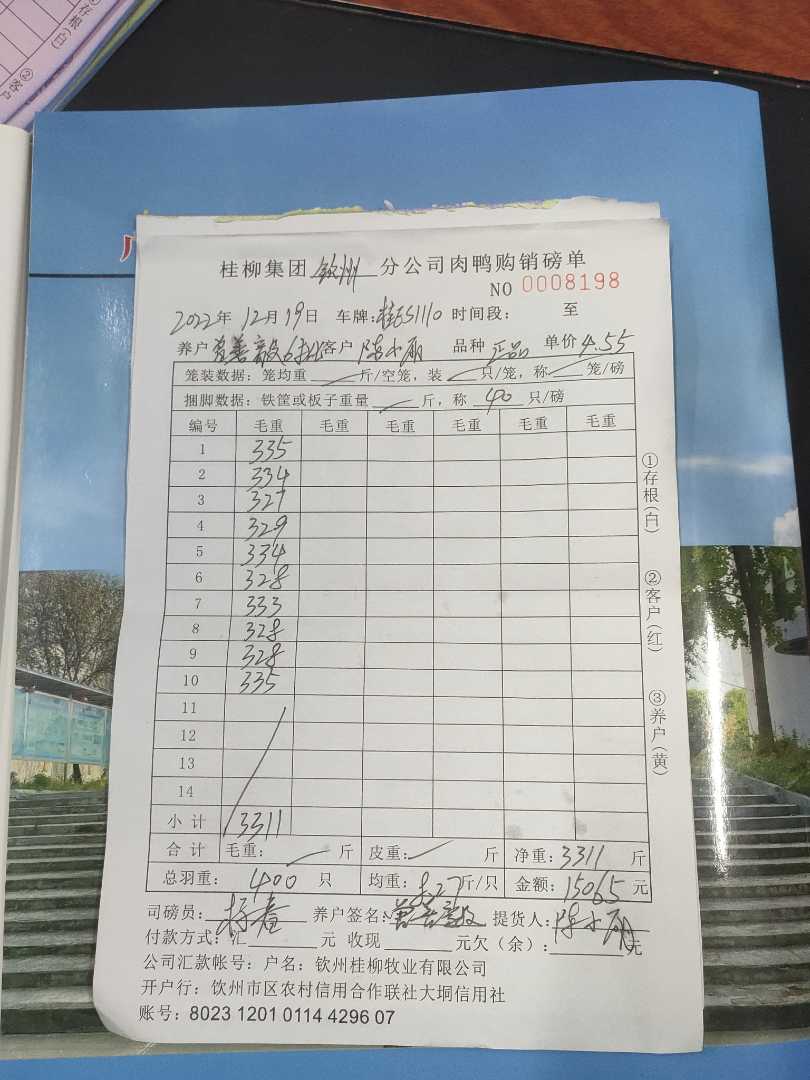 ①存根(白)
②客户
桂柳集团 钦州 分公司肉鸭购销磅单
NO 0008198
2022年 12月19日 车牌:桂ES1110 时间段: 至
养户 曾善毅 客户 陈小丽 品种 正品 单价 4.55
笼装数据:笼均重 斤/空笼,装 只/笼,称 笼/磅
捆脚数据:铁筐或板子重量 斤,称 40 只/磅
编号 毛重 毛重 毛重 毛重 毛重 毛重
1 335
2 334
3 327
4 329
5 334
6 328
7 333
8 328
9 328
10 335
11
12
13
14
小计 3311
合计 毛重: 斤 皮重: 斤 净重:3311 斤
总羽重: 400 只 均重:8.27斤/只 金额:15065 元
司磅员: 养户签名:曾善毅 提货人:陈小丽
付款方式:汇 元 收现 元欠(余): 元
公司汇款帐号:户名:钦州桂柳牧业有限公司
开户行:钦州市区农村信用合作联社大垌信用社
账号:8023 1201 0114 4296 07
①存根(白)
②客户(红)
③养户(黄)